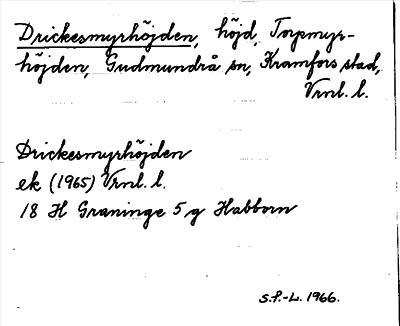 Drickesmyrhöjden, höjd, Torpmyr-
höjden, Gudmundrå sn, Kramfors stad,
Vrnl. l.
Drickesmyrhöjden
ek (1965) Vrnl. l.
18 H Graninge 5 g Habborn
S.P.-L. 1966.